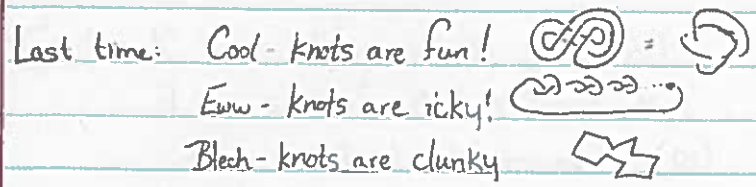 Last time: Cool - knots are fun! =
Eww - knots are icky!
Blech - knots are clunky